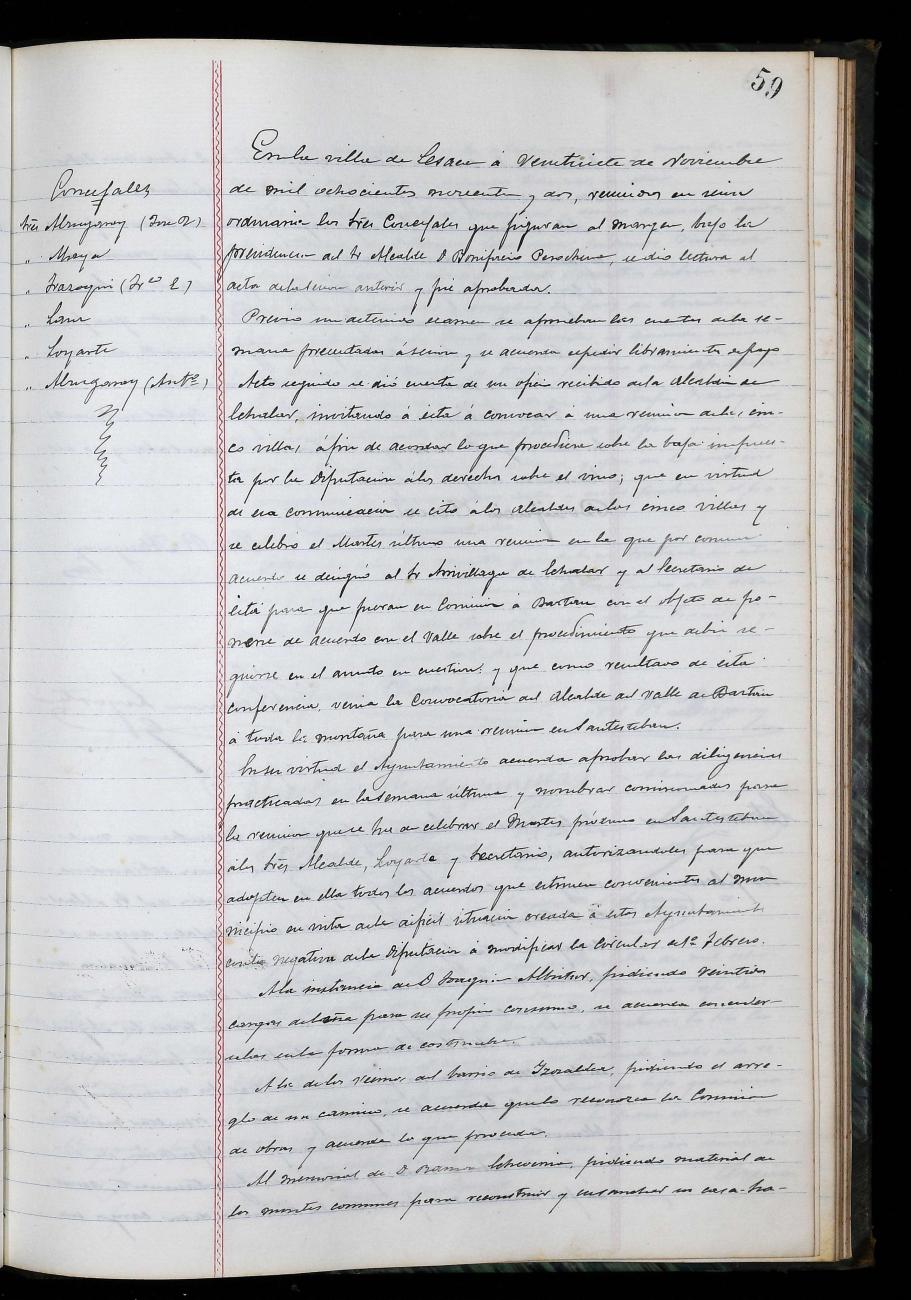 59
En la villa de Lesaca á veintisiete de Noviembre
de mil ochocientos noventa y dos, reunidos en sesion
ordinaria los Sres Concejales que figuran al margen, bajo la
presidencia del Sr Alcalde D Bonifacio Perochena, se dio lectura al
acta de la sesion anterior y fué aprobada.
Concejales
Sres Almugarray (José J)
" Maya
" Irazoqui (Fr.co L)
" Lanz
" Loyarte
" Almugarray (Ant.o)
Previo un detenido examen se aprueban las cuentas de la se-
mana presentadas á sesion y se acuerda expedir libramientos de pago
Acto seguido se dió cuenta de un oficio recibido de la Alcaldia de
Echalar, invitando á esta á convocar á una reunion de las cin-
co villas, á fin de acordar lo que procediera sobre la baja impues-
ta por la Diputacion á los derechos sobre el vino; que en virtud
de esa comunicacion se citó á los Alcaldes de las cinco villas y
se celebró el Martes último una reunion en la que por comun
acuerdo se designó al Sr Arrivillaga de Echalar y al Secretario de
esta para que fueran en Comision á Baztan con el objeto de po-
nerse de acuerdo con el Valle sobre el procedimiento que debia se-
guirse en el asunto en cuestion: y que como resultado de esta
conferencia, venia la Convocatoria del Alcalde del Valle de Baztan
á toda la montaña para una reunion en Santesteban.
En su virtud el Ayuntamiento acuerda aprobar las diligencias
practicadas en la semana última y nombrar comisionados para
la reunion que se ha de celebrar el Martes próximo en Santesteban
á los Sres Alcalde, Loyarte y Secretario, autorizandoles para que
adopten en ella todos los acuerdos que estimen convenientes al mu
nicipio en vista de la dificil situacion creada á estos Ayuntamientos
con la negativa de la Diputacion á modificar la circular de 1º Febrero.
A la instancia de D Joaquin pidiendo veintidos
cargas de leña para su propio consumo, se acuerda conceder-
selas en la forma de costumbre.
A la de los vecinos del barrio de pidiendo el arre-
glo de un camino, se acuerda que lo reconozca la Comision
de obras y acuerde lo que proceda.
Al memorial de D Ramon Echeverria, pidiendo material de
los montes comunes para reconstruir y ensanchar su casa-ha-